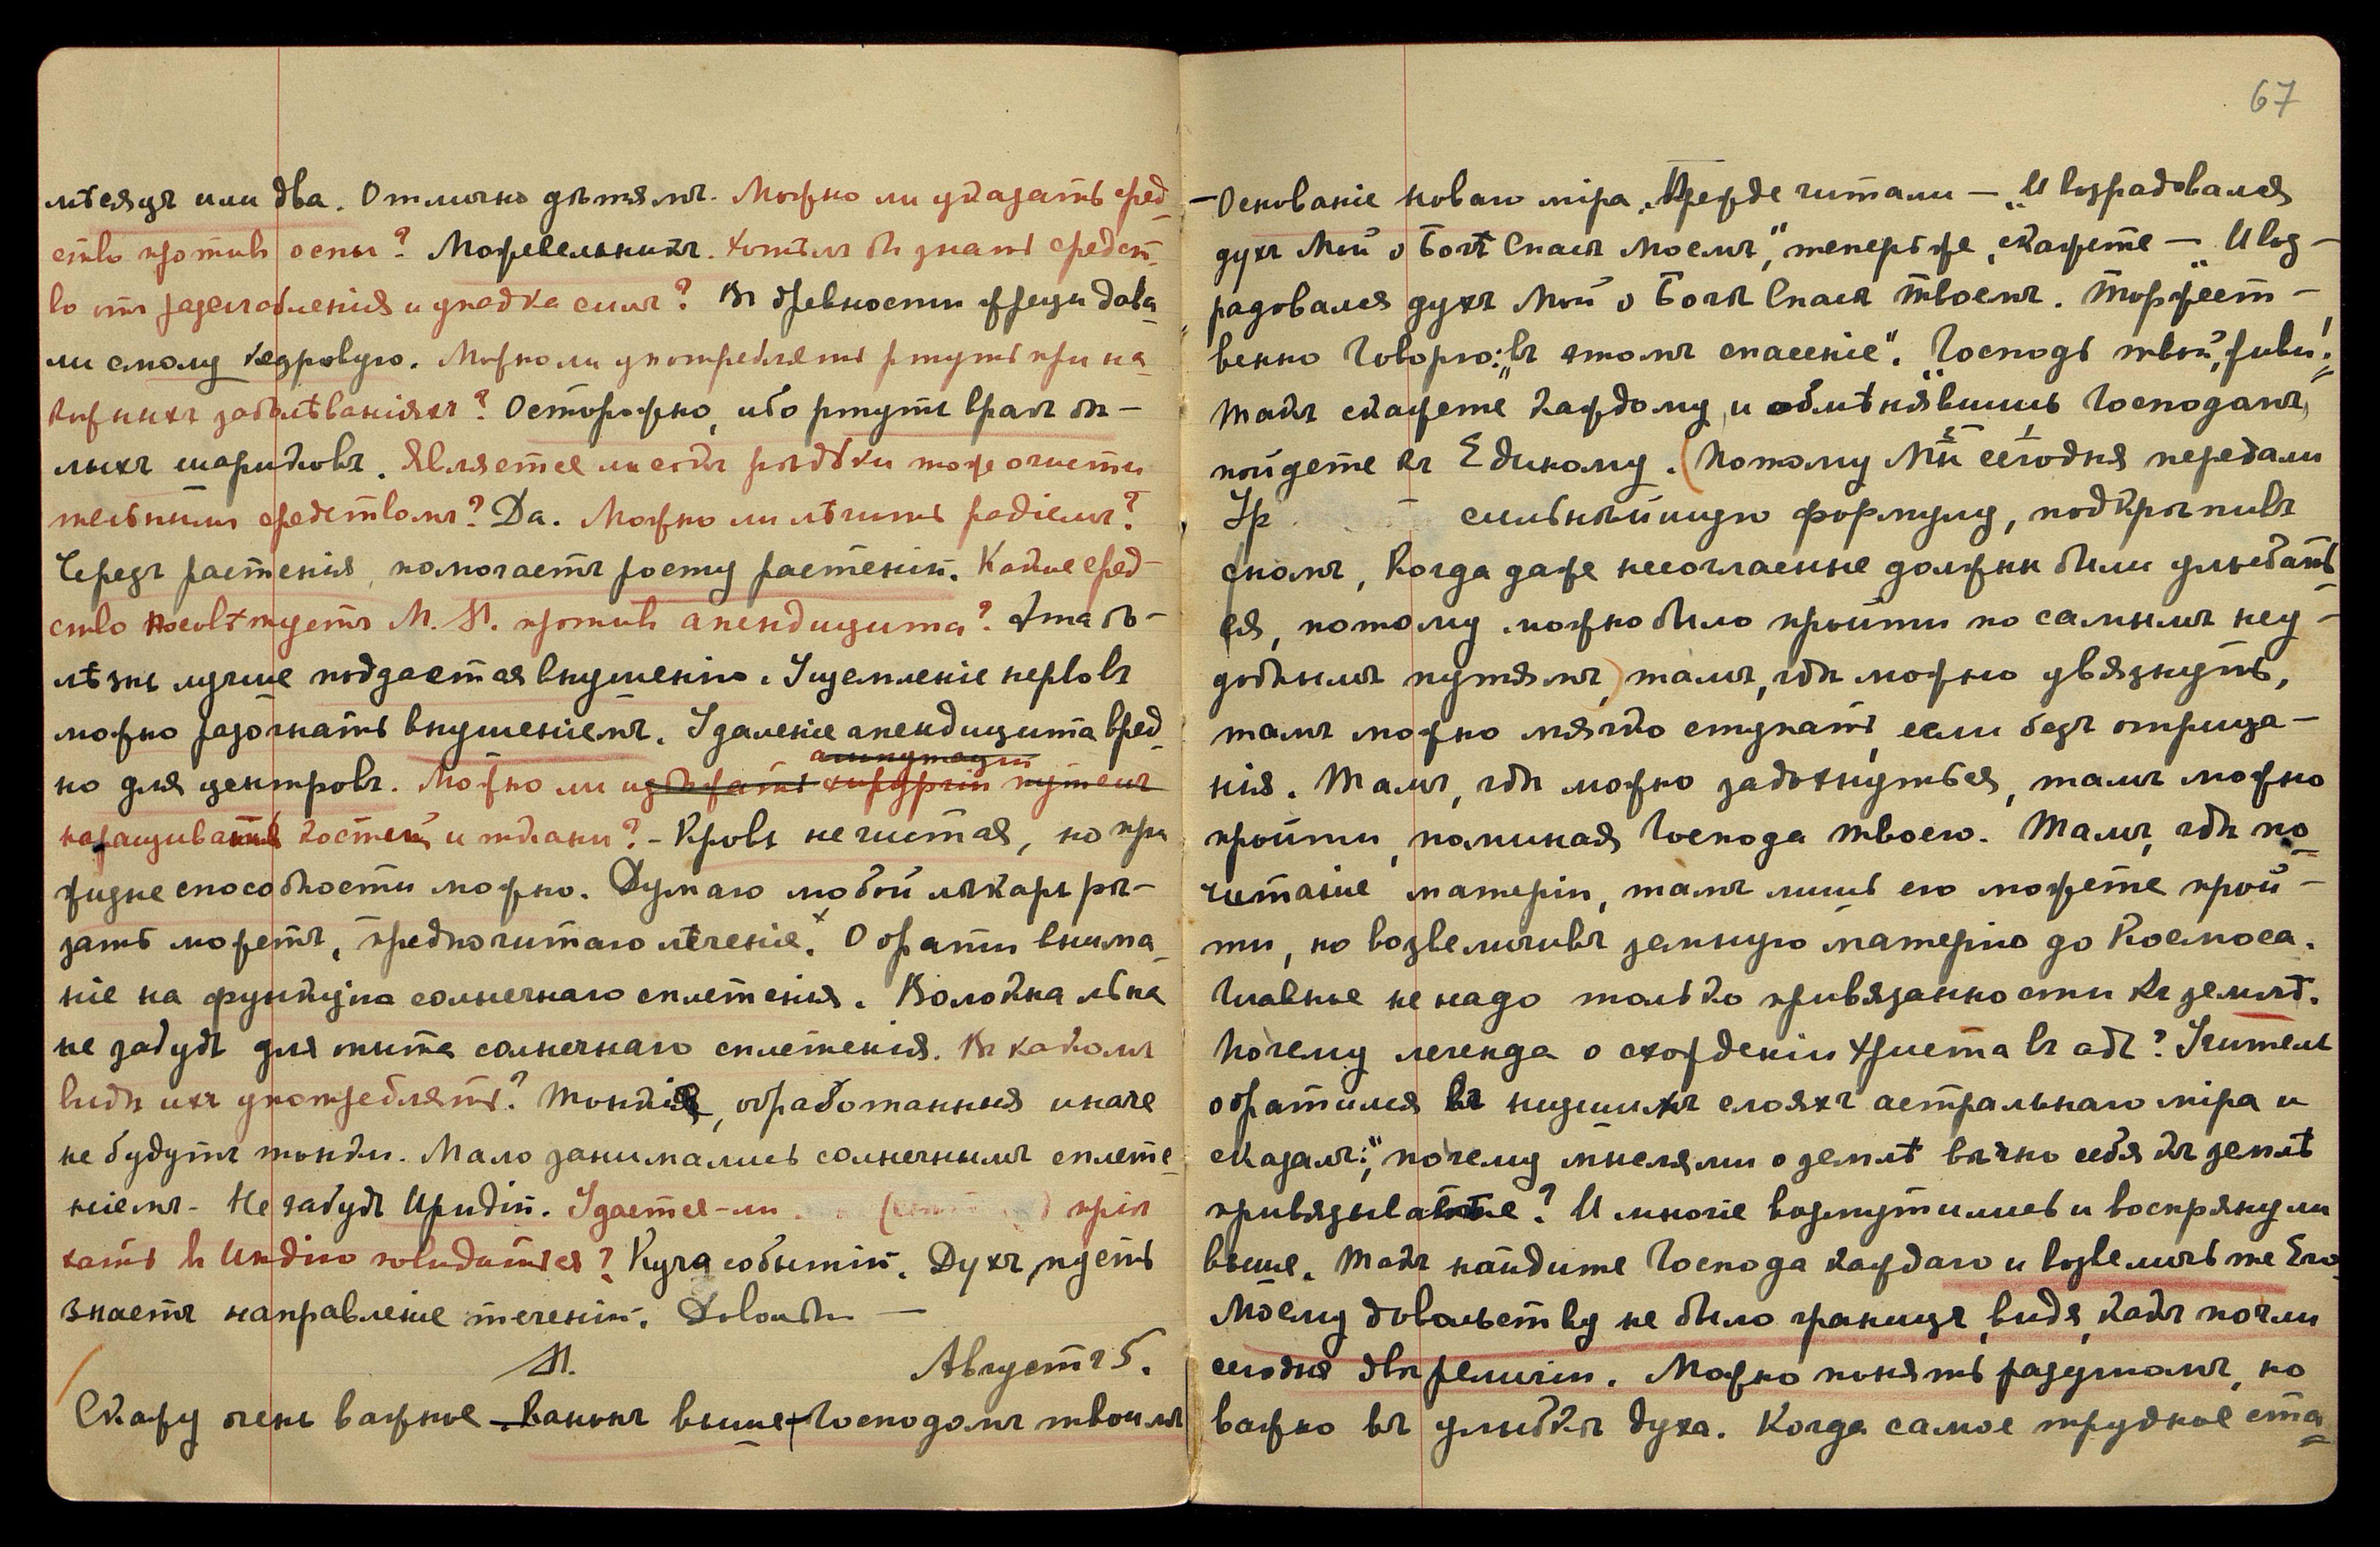 мѣсяцъ или два. Отлично дѣтямъ. Можно ли указать сред-
ство противъ оспы? Можевельникъ. Хотѣли бы знать средст-
во отъ разслабленія и упадка силъ? Въ древности жрецы дава-
ли смолу кедровую. Можно ли употреблять ртуть при на-
кожныхъ заболѣваніяхъ? Осторожно, ибо ртуть врагъ бѣ-
лыхъ шариковъ. Является ли сокъ рѣдьки тоже очисти
тельнымъ средствомъ? Да. Можно ли лѣчить радіемъ?
Черезъ растенія, помогаетъ росту растеній. Какое сред-
ство посовѣтуетъ М. М. противъ апендицита? Эта бо-
лѣзнь лучше поддается внушенію. Ущемленіе нервовъ
можно разогнать внушеніемъ. Удаленіе апендицита вред-
ампутаціи
но для центровъ. Можно ли избѣжать хирургіи путемъ
наращиванія костей и ткани? - Кровь не чистая, но при
жизнеспособности можно. Думаю любой лѣкарь рѣ-
зать можетъ, предпочитаю лѣченіе. Обрати внима-
ніе на функцію солнечнаго сплетенія. Волокна льна
не забудь для щита солнечнаго сплетенія. Въ какомъ
видѣ ихъ употреблять? Тонкія, обработанныя иначе
не будутъ тонки. Мало занимались солнечнымъ сплете-
ніемъ. Не забудь Иридій. Удается-ли пріѣ
хать въ Индію повидаться? Куча событій. Духъ, пусть
знаетъ направленіе теченій. Довольно —
М. Августъ 5.
Скажу очень важное – ваномъ выше + Господомъ твоимъ
67
– Основаніе новаго міра. Прежде читали – „И возрадовался
духъ Мой о Богѣ Спасѣ Моемъ", теперь же, скажете – „И воз-
радовался духъ Мой о Богѣ Спасѣ твоемъ. Торжест-
венно Говорю: „въ этомъ спасеніе". „Господь твой, живи!"
такъ скажете каждому, и обмѣнявшись Господомъ,
пойдете къ Единому. (Потому Мы сегодня передали
Ур сильнѣйшую формулу, подкрѣпивъ
сномъ, когда даже несогласные должны были улыбать-
ся, потому можно было пройти по самымъ неу-
добнымъ путямъ,) тамъ, гдѣ можно увязнуть,
тамъ можно мягко ступать, если безъ отрица-
нія. Тамъ, гдѣ можно задохнуться, тамъ можно
пройти, поминая Господа твоего. Тамъ, гдѣ по-
читаніе матеріи, тамъ лишь его можете прой-
ти, но возвеличивъ земную матерію до Космоса.
Главное не надо только привязанности къ землѣ.
Почему легенда о схожденіи Христа въ адъ? Учитель
обратился въ низшихъ слояхъ астральнаго міра и
сказалъ: „почему мыслями о землѣ вѣчно себя къ землѣ
привязываете? И многіе возмутились и воспрянули
выше. Такъ найдите Господа каждаго и возвеличьте Его.
Моему довольству не было границъ, видя, какъ почли
сегодня двѣ религіи. Можно понять разумомъ, но
важно въ улыбкѣ духа. Когда самое трудное ста-